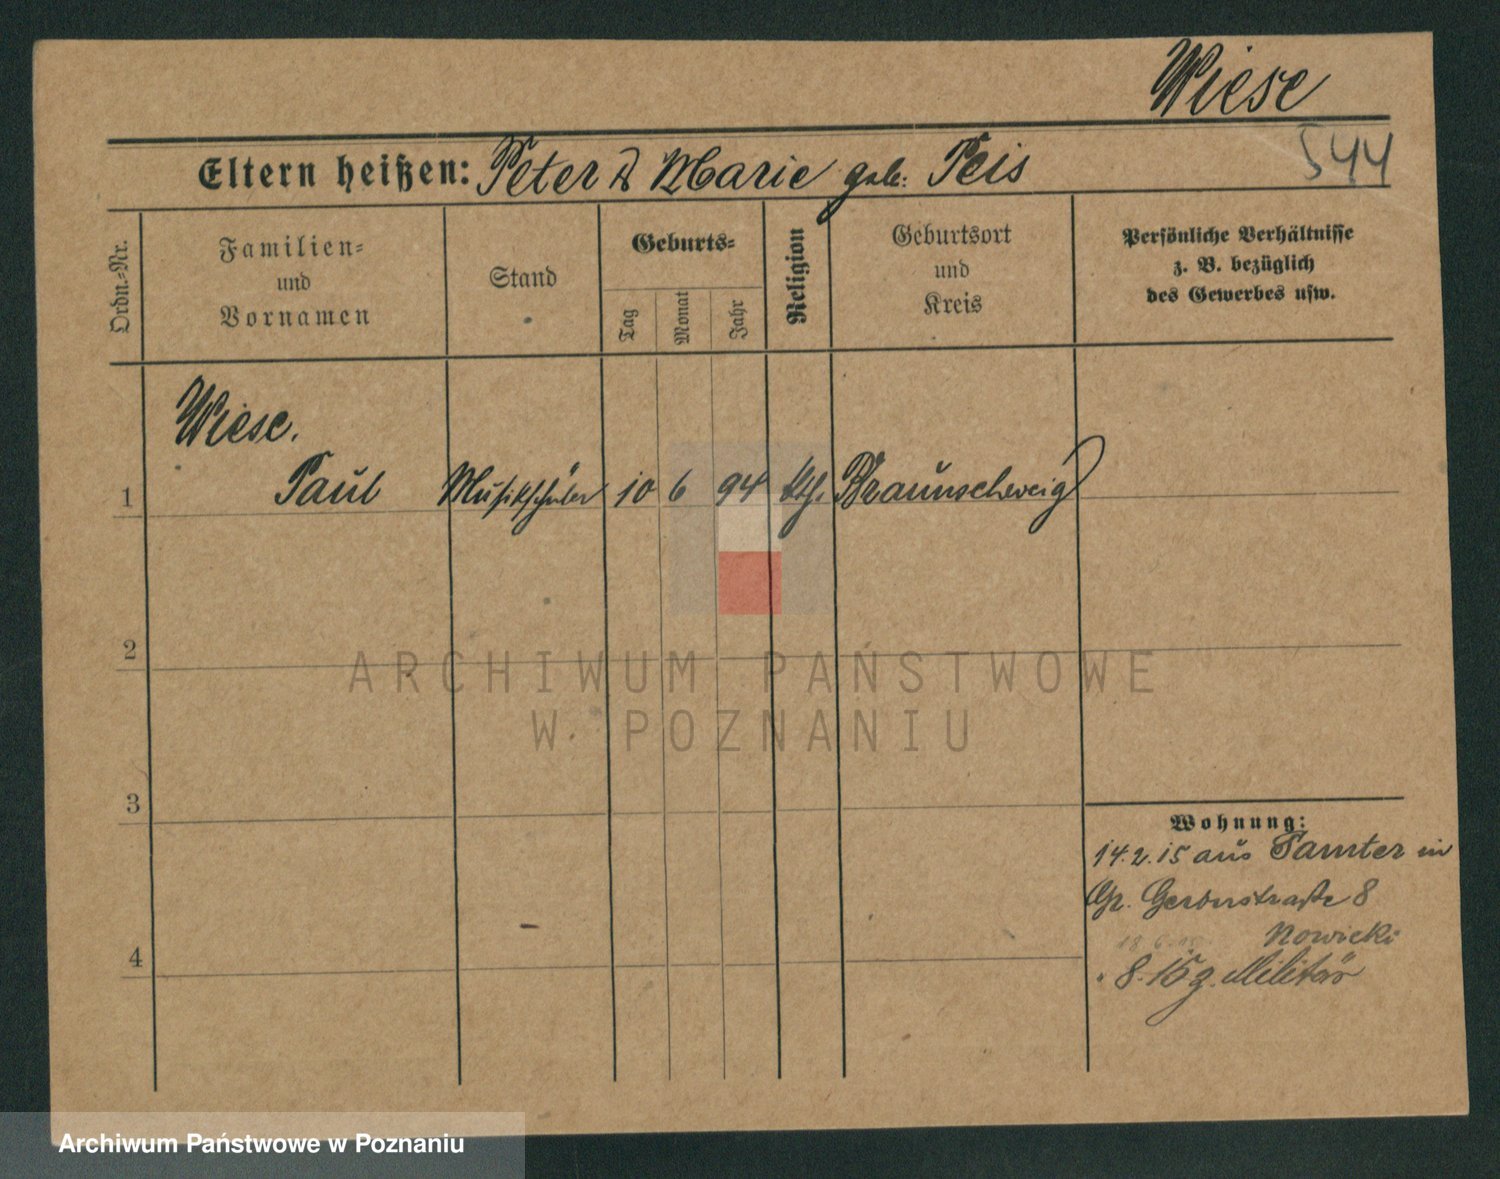 Wiese
544
Eltern heißen: Peter & Marie geb. Peis
Ordn.-Nr.
Familien-
und
Vornamen
Stand
Geburts-
Tag
Monat
Jahr
Religion
Geburtsort
und
Kreis
Persönliche Verhältnisse
z. B. bezüglich
des Gewerbes usw.
Wiese.
1 Paul Musikschüler 10 6 94 kth. Braunschweig
2
3
4
Wohnung:
14.2.15 aus Samter in
Gr. Gerberstraße 8
Nowicki
8.15 z. Militär
ARCHIWUM PAŃSTWOWE
W POZNANIU
Archiwum Państwowe w Poznaniu